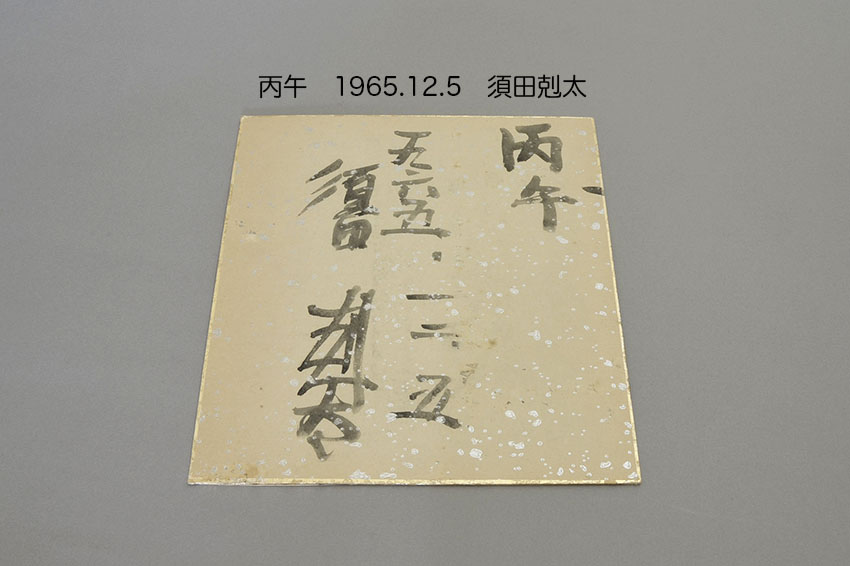 丙午　1965.12.5　須田剋太
丙午
一九六五．一二．五
須田剋太